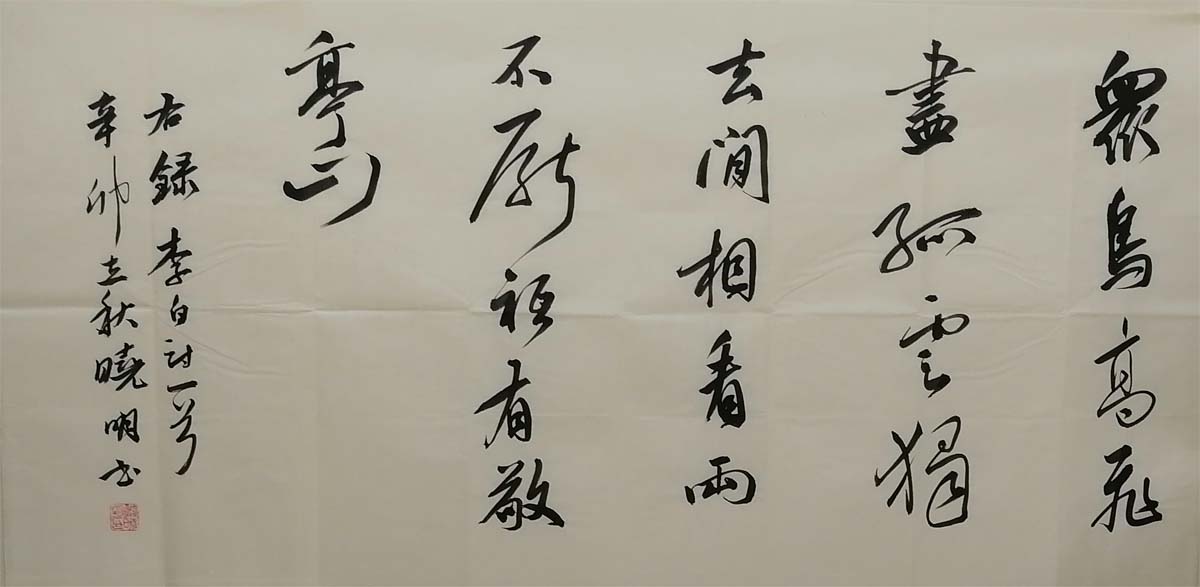 眾鳥高飛
盡孤雲獨
去閒相看兩
不厭祇有敬
亭山
右録李白詩一首
辛卯立秋曉明書